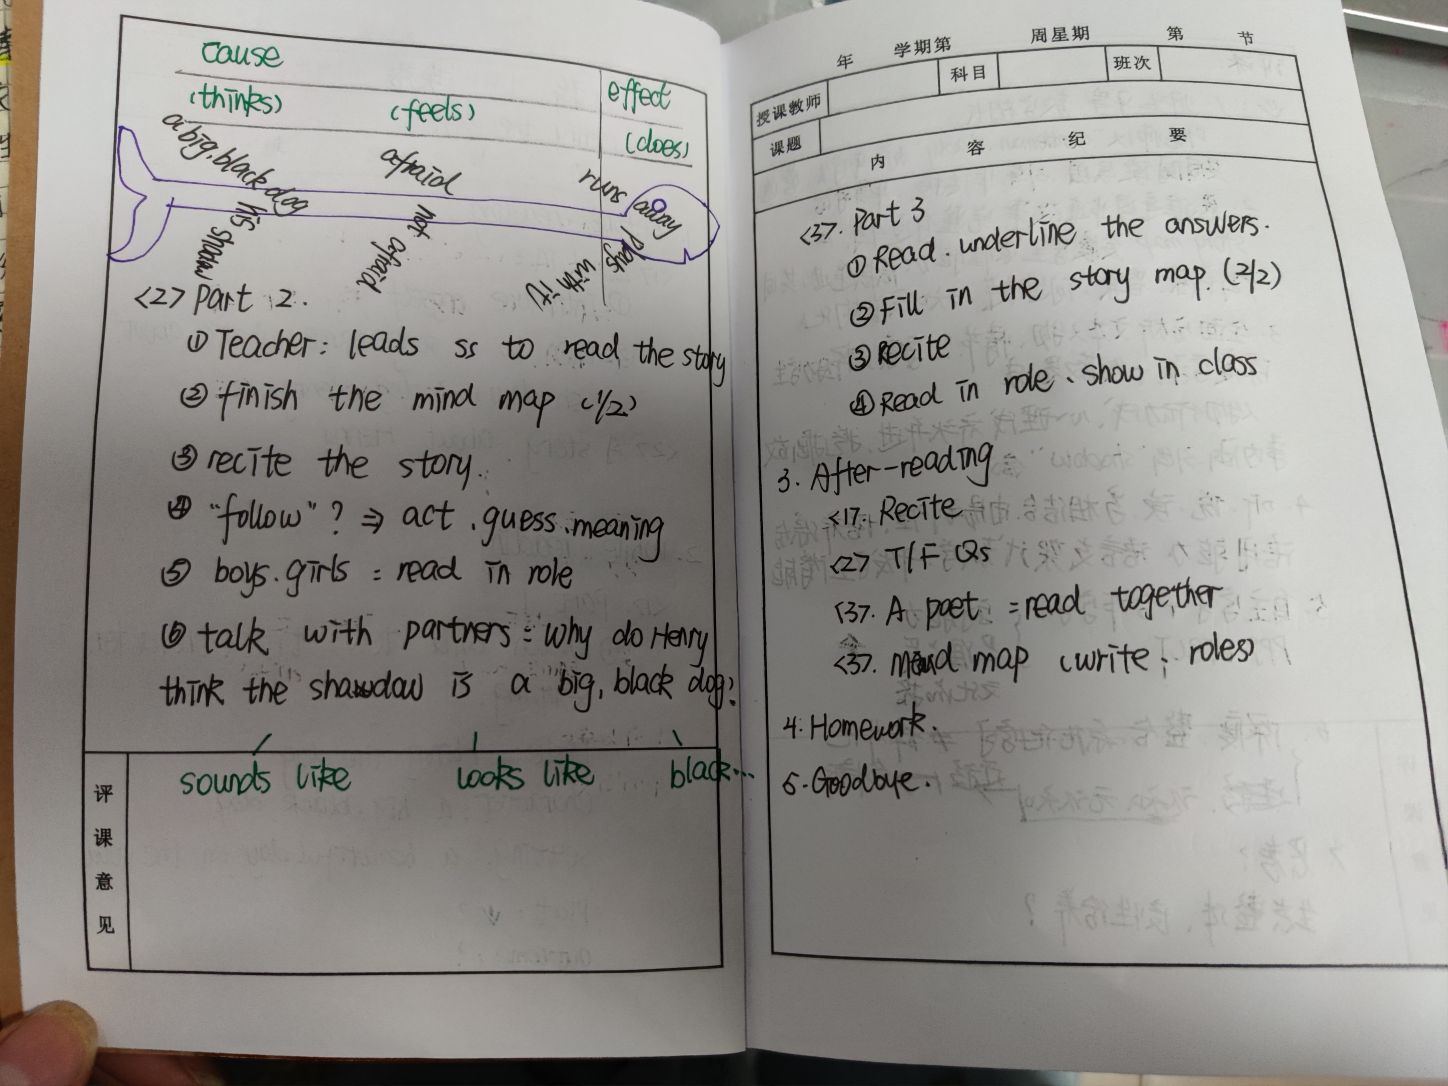 cause
effect
(thinks) (feels)
(does)
a big, black dog afraid runs away
his shadow not afraid plays with it
<2> Part 2.
① Teacher: leads ss to read the story
② finish the mind map (1/2)
③ recite the story.
④ "follow"? ⇒ act. guess. meaning
⑤ boys. girls: read in role
⑥ talk with partners: why do Henry
think the shawdow is a big, black dog?
sounds like looks like black...
评课意见
年 学期第 周星期 第 节
授课教师 科目 班次
课题
内 容 纪 要
<3>. Part 3
① Read. underline the answers.
② Fill in the story map. (2/2)
③ Recite
④ Read in role、show in class
3. After-reading
<1>. Recite
<2> T/F Qs
<3>. A poet: read together
<3>. map (write; roles)
4. Homework.
5. Goodbye.